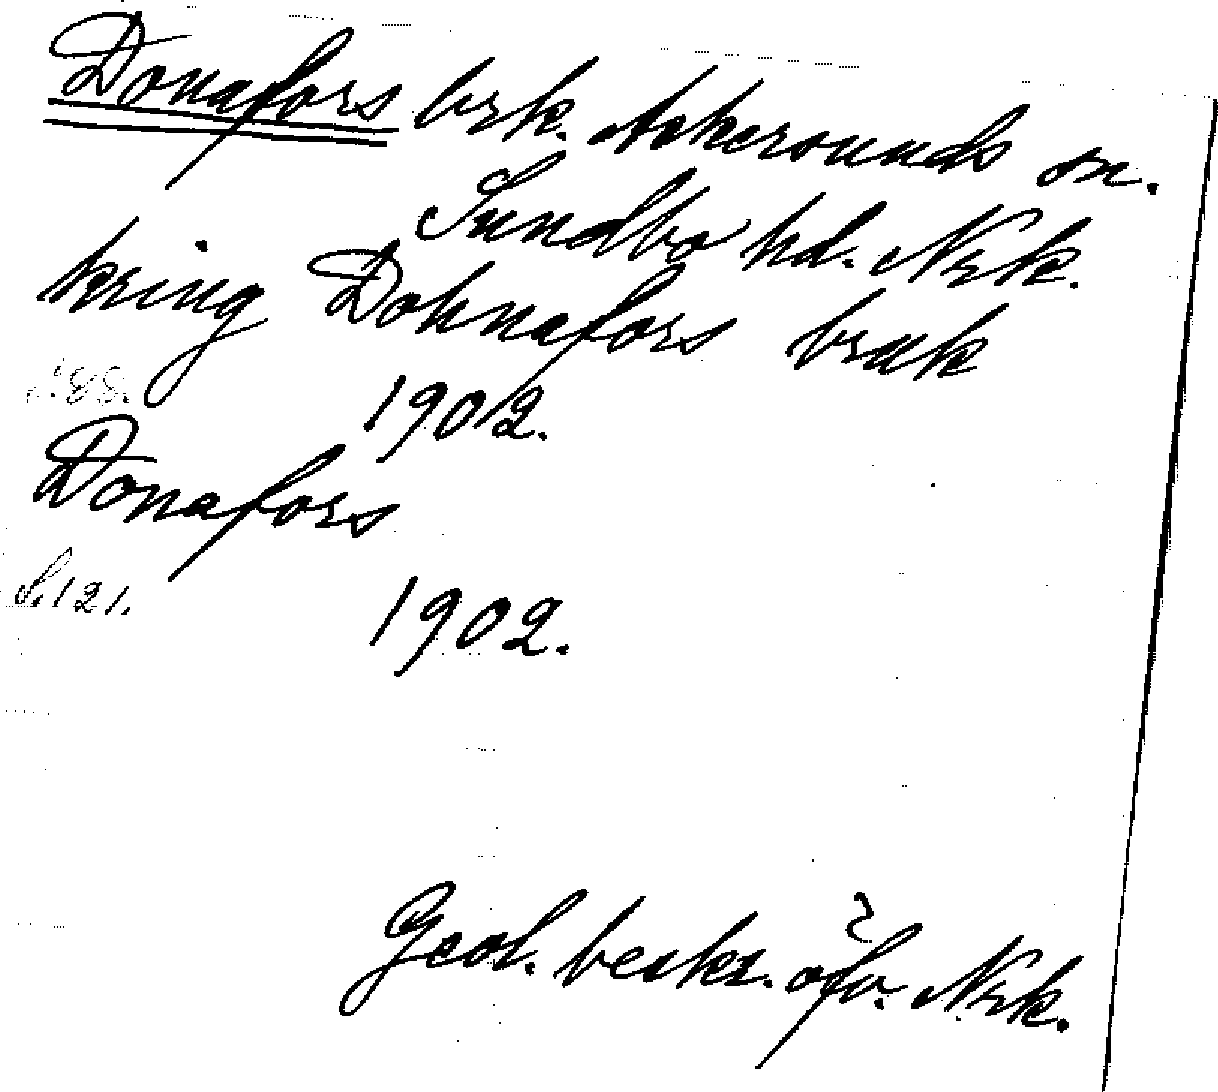 Donafors brk. Askersunds sn.
Sundbo hd. Nrk.
kring Dohnafors bruk
s. 88. 1902.
Donafors
S. 121. 1902.
Geol. beskr. öfv. Nrk.